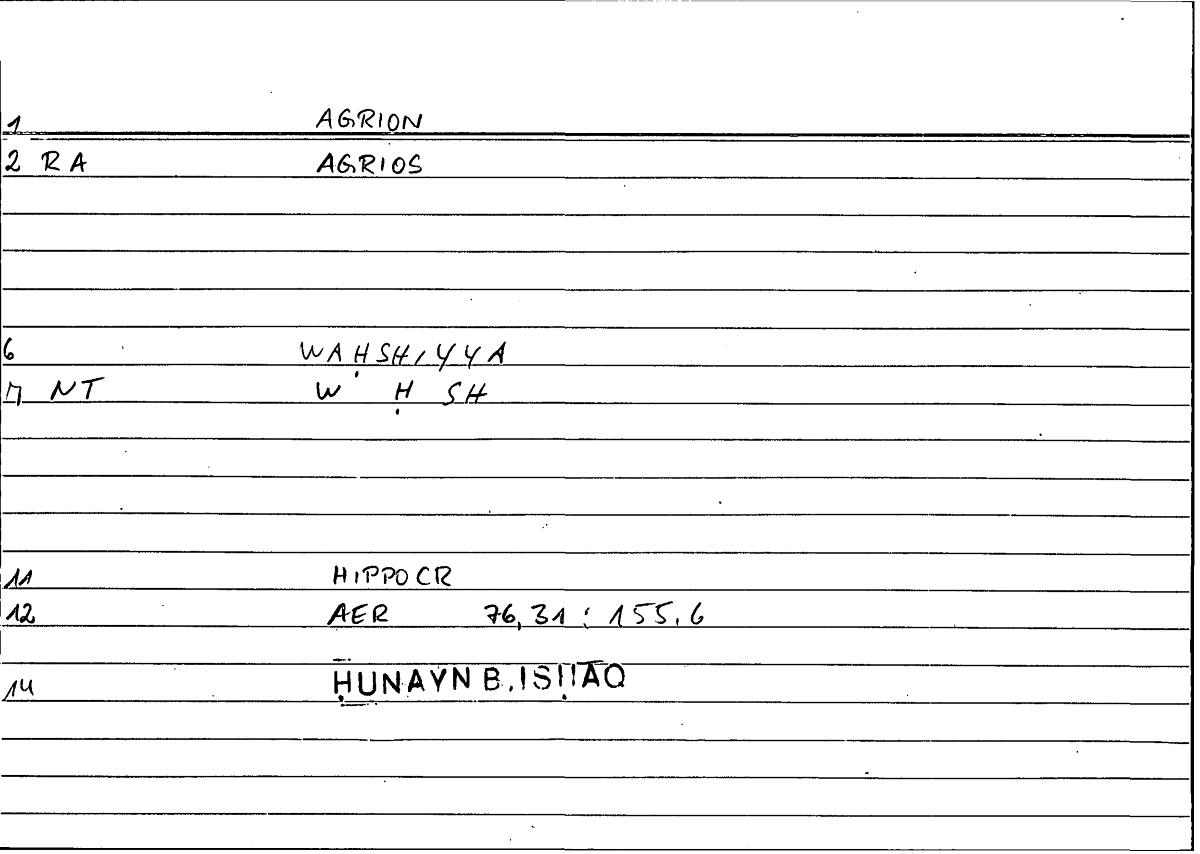 1 AGRION
2 RA AGRIOS
6 WAḤSHIYYA
7 NT W Ḥ SH
11 HIPPOCR
12 AER 76,31 : 155,6
14 ḤUNAYN B. ISḤĀQ